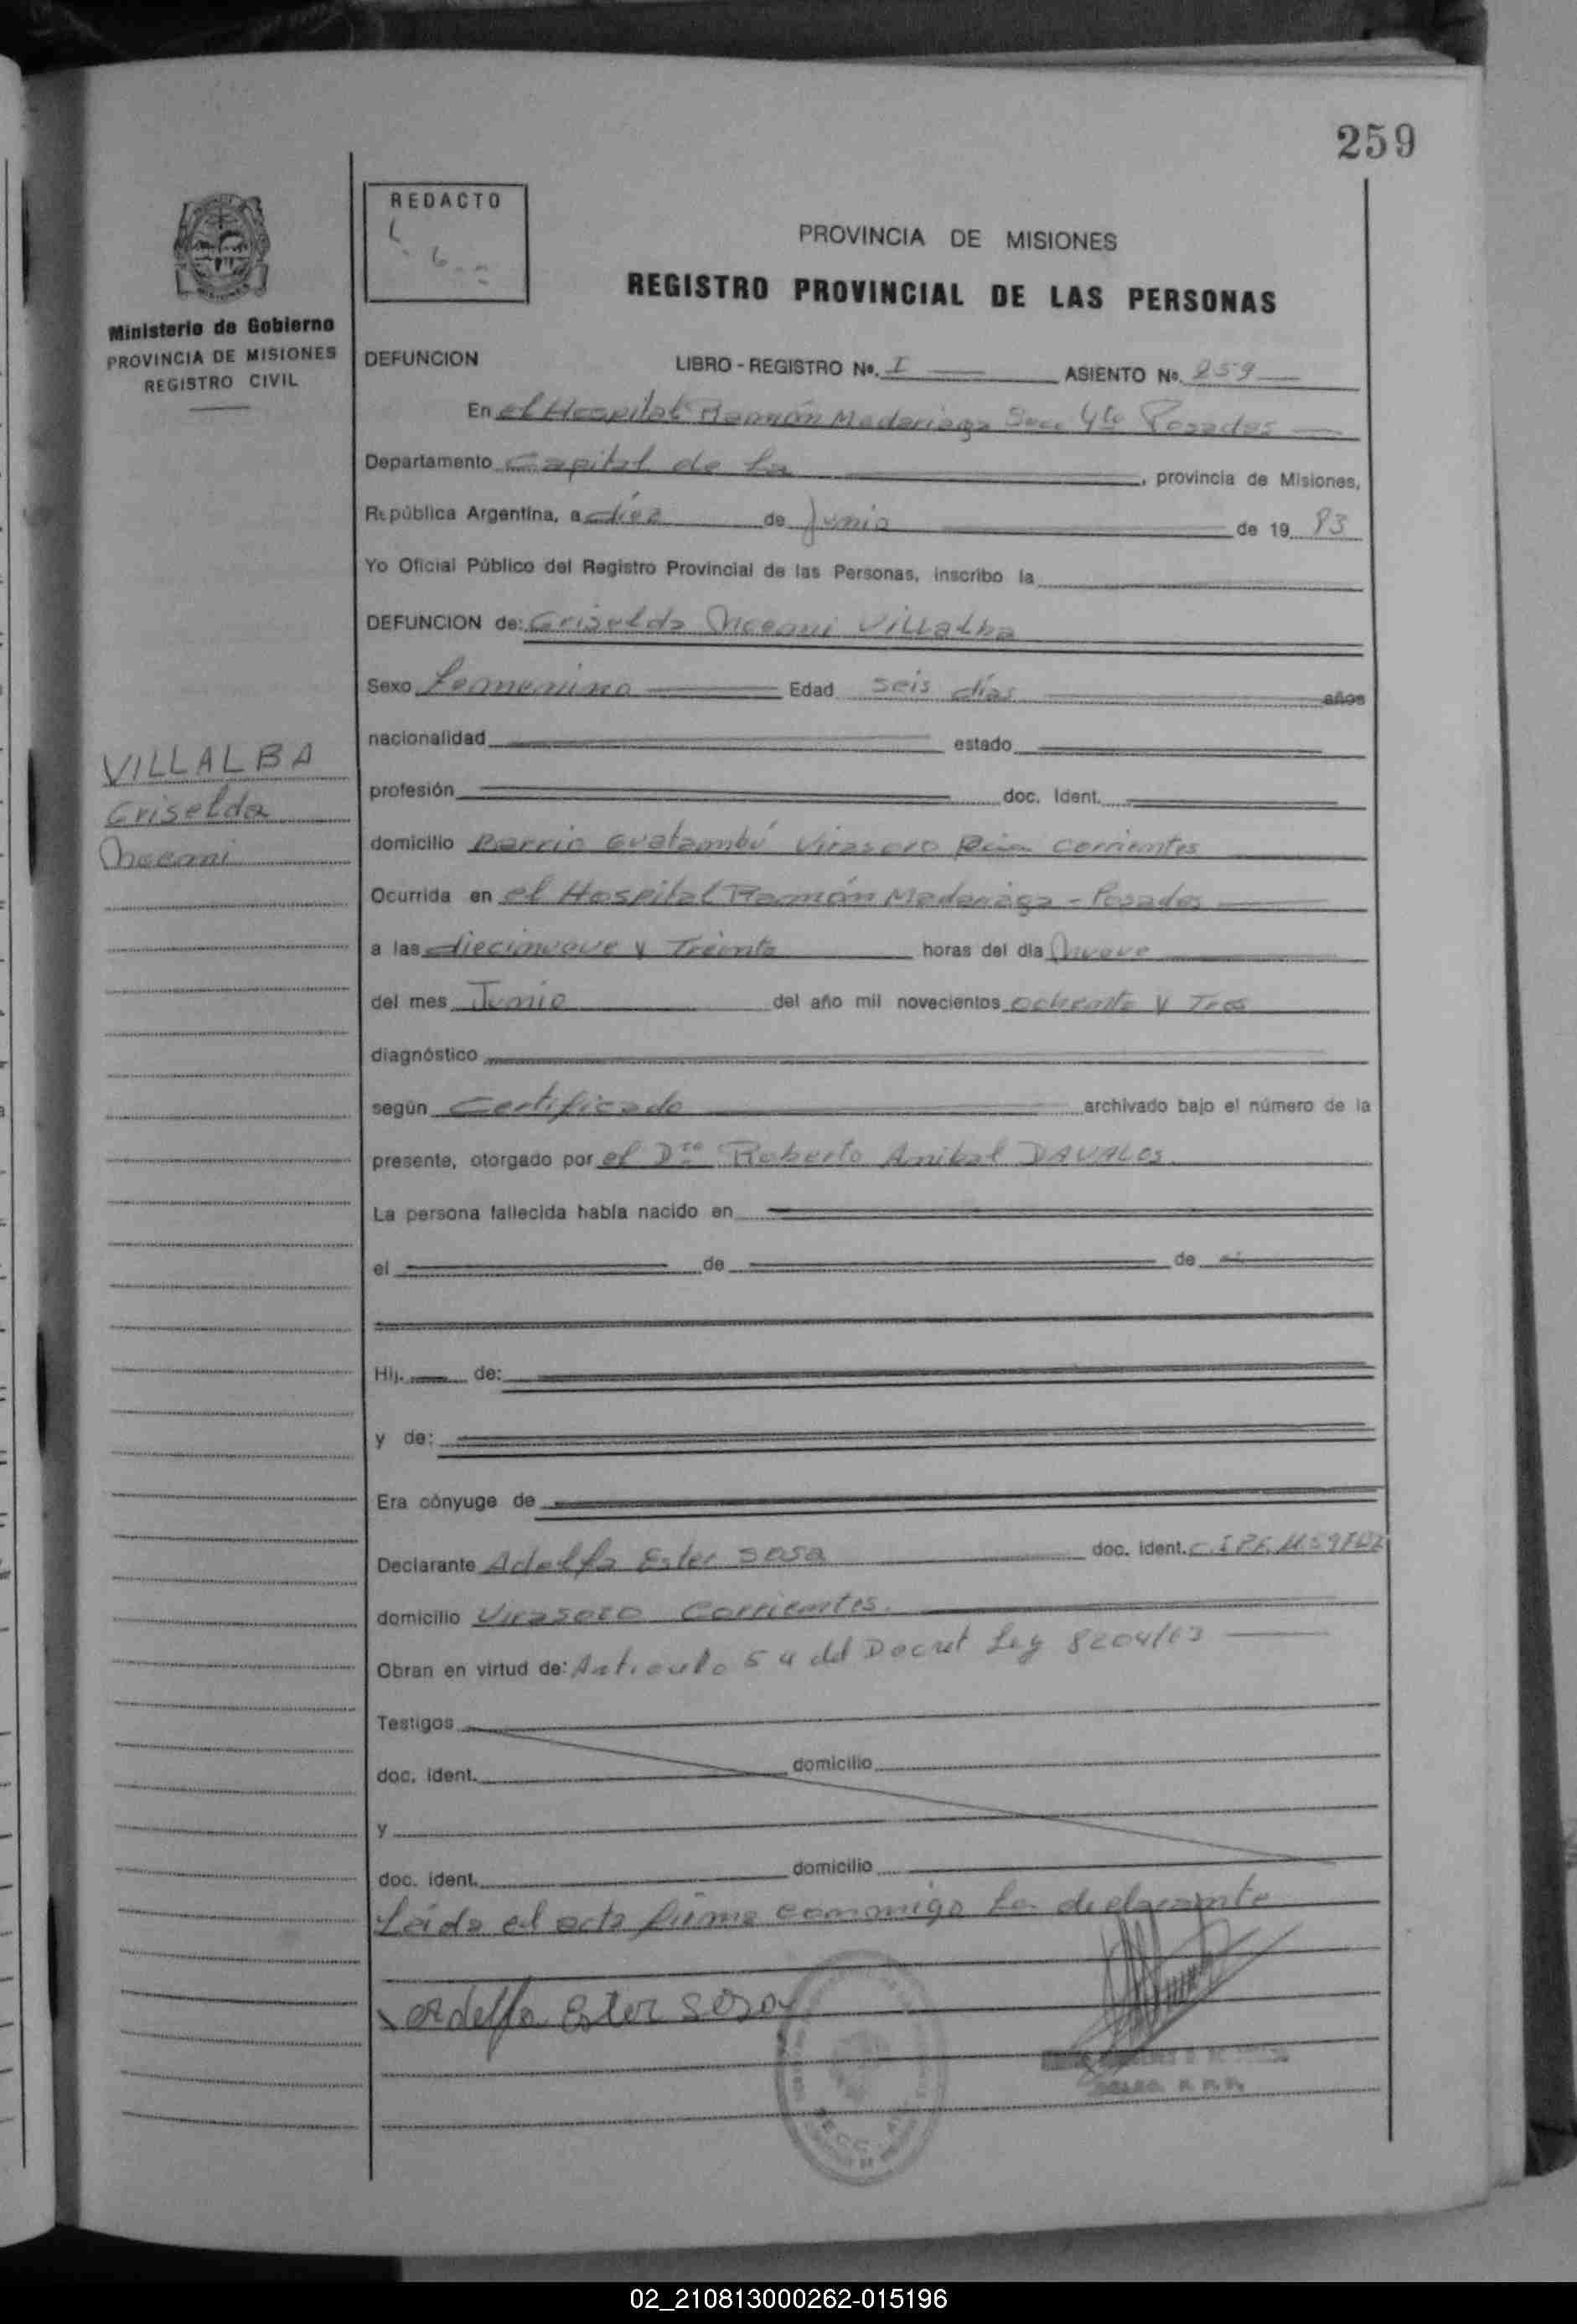 259
REDACTO
PROVINCIA DE MISIONES
REGISTRO PROVINCIAL DE LAS PERSONAS
Ministerio de Gobierno
PROVINCIA DE MISIONES
REGISTRO CIVIL
DEFUNCION LIBRO - REGISTRO Nº. I ASIENTO Nº. 259
En el Hospital Ramón Madariaga Secc 4ta Posadas
Departamento Capital de la, provincia de Misiones,
República Argentina, a diéz de Junio de 19 83
Yo Oficial Público del Registro Provincial de las Personas, inscribo la
DEFUNCION de: Griselda Villalba
Sexo Femenino Edad seis días años
nacionalidad estado
profesión doc. Ident.
domicilio Barrio Guatambú Virasoro Pcia Corrientes
Ocurrida en el Hospital Ramón Madariaga - Posadas
a las diecinueve y Treinta horas del día Nueve
del mes Junio del año mil novecientos ochenta y Tres
diagnóstico
según Certificado archivado bajo el número de la
presente, otorgado por el Roberto Anibal DAVALOS
La persona fallecida había nacido en
el de de
Hij. de:
y de:
Era cónyuge de
Declarante Adelfa Ester Sosa doc. ident.
domicilio Virasoro Corrientes.
Obran en virtud de: Articulo 54 del Decret Ley 8204/63
Testigos
doc. ident. domicilio
y
doc. ident. domicilio
Leida el acta firma conmigo la declarante
Adelfa Ester Sosa
VILLALBA
Griselda
02_210813000262-015196